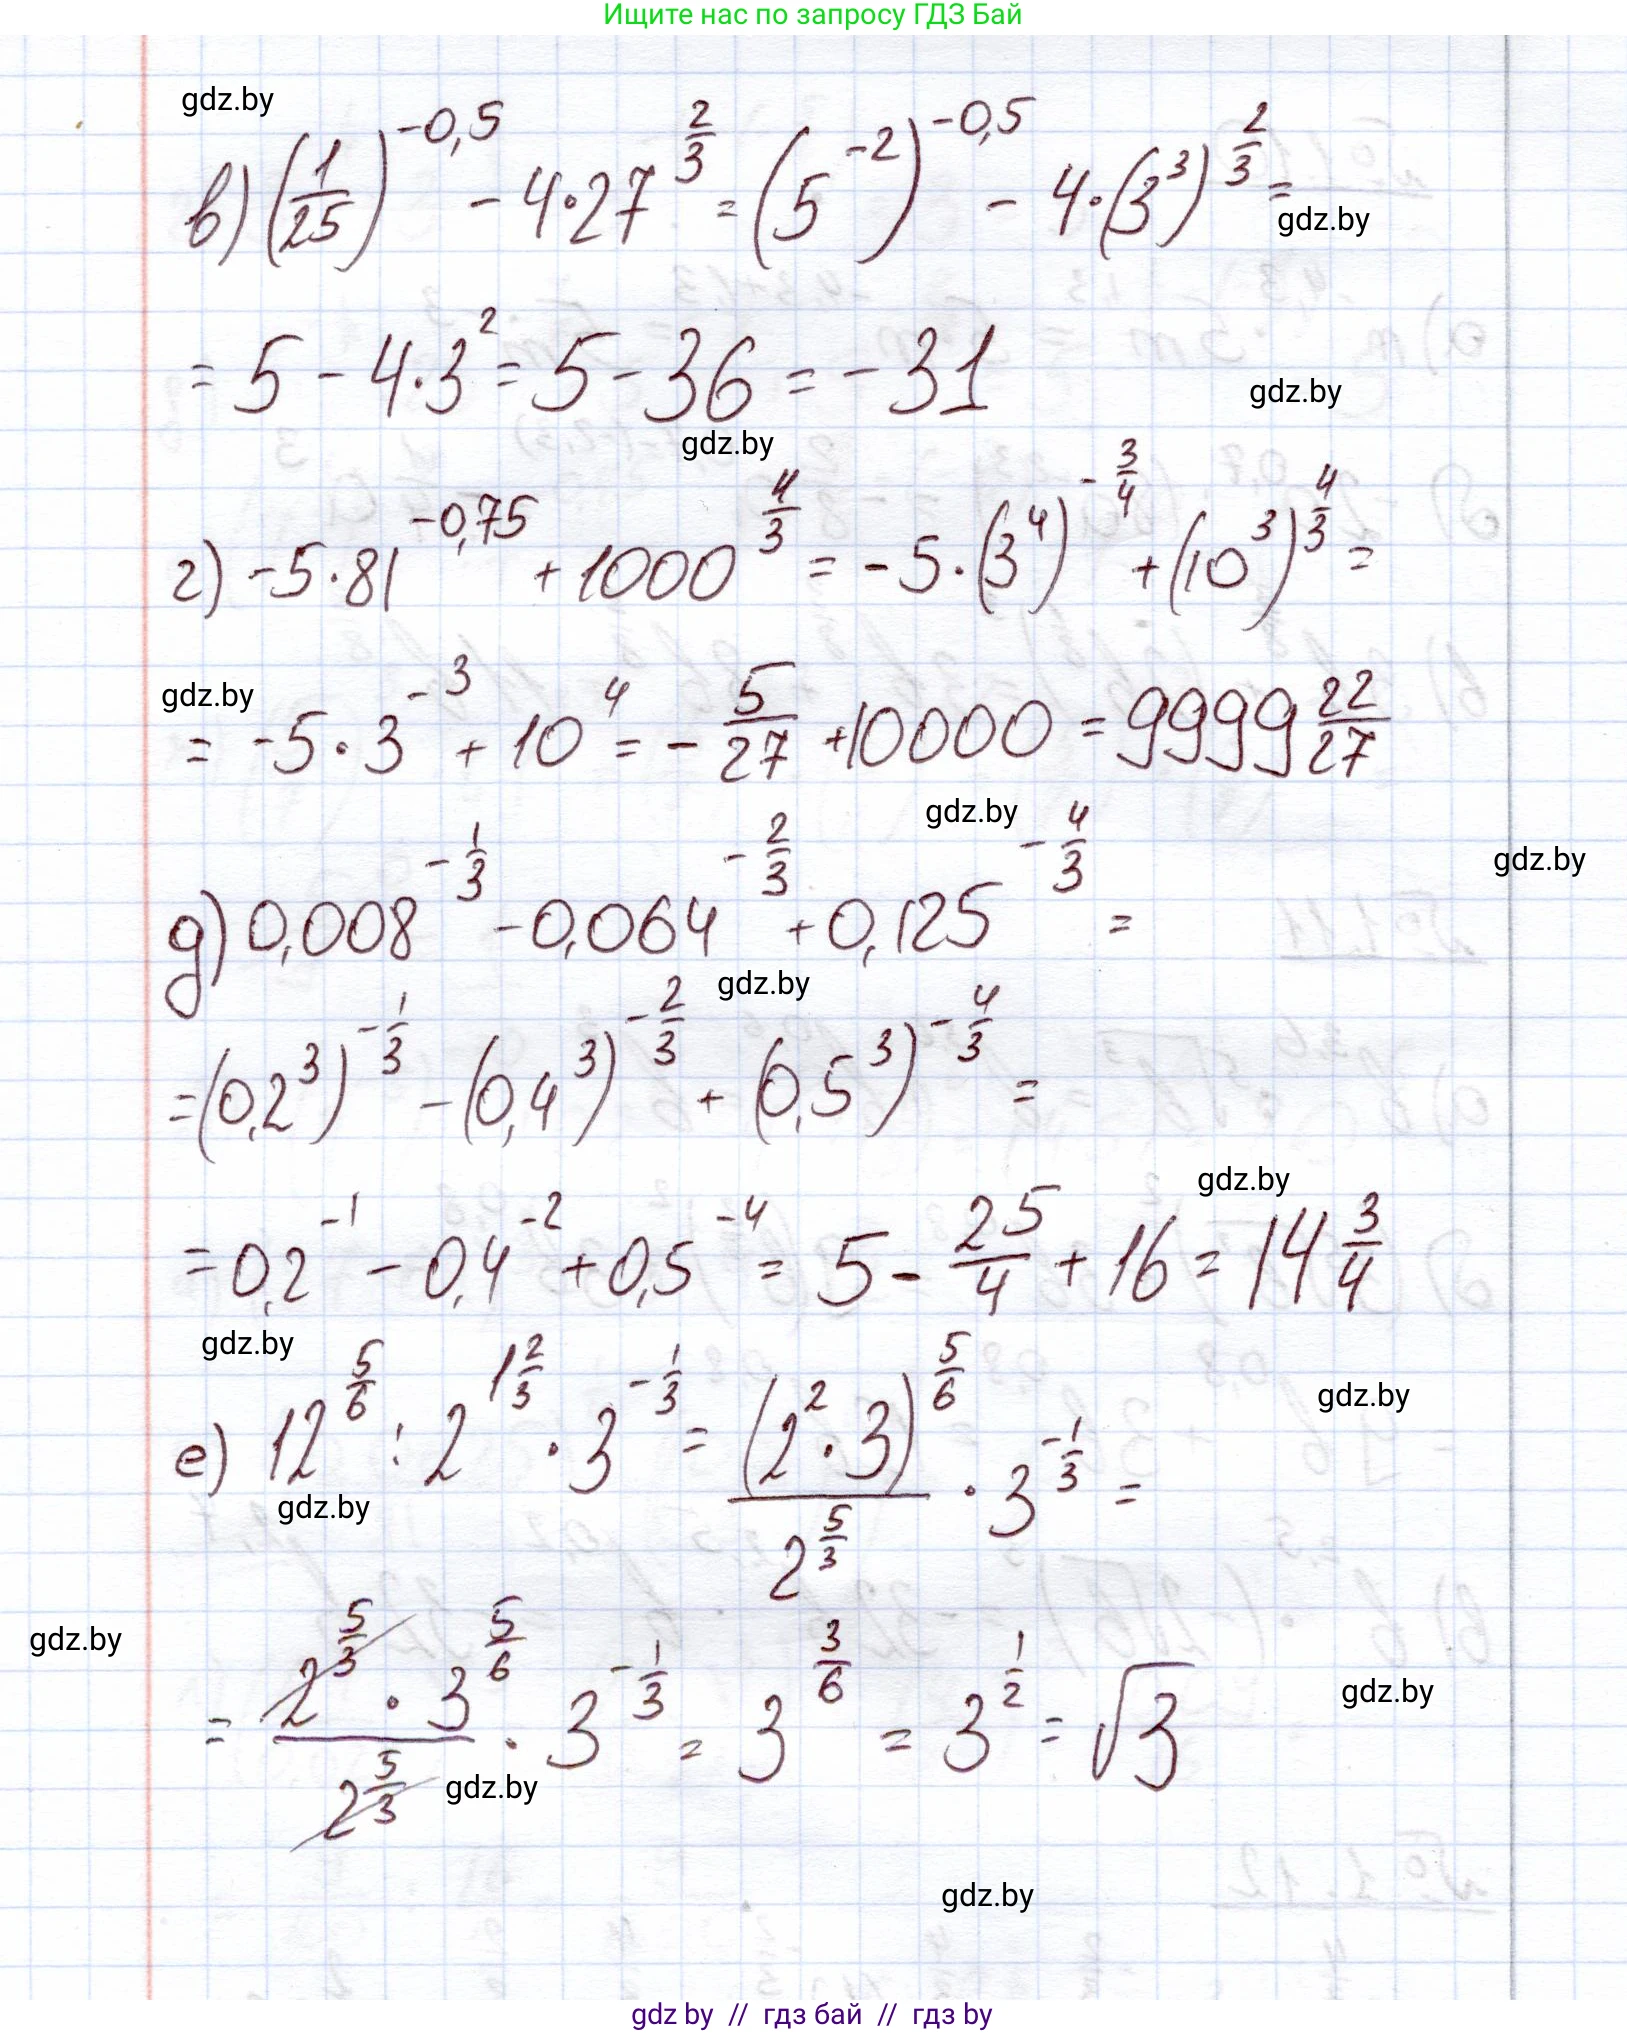 Ищите нас по запросу ГДЗ Бай
gdz.by
в) (1/25)^(-0,5) - 4·27^(2/3) = (5^(-2))^(-0,5) - 4·(3^3)^(2/3) =
gdz.by
= 5 - 4·3^2 = 5 - 36 = -31
gdz.by
gdz.by
г) -5·81^(-0,75) + 1000^(4/3) = -5·(3^4)^(-3/4) + (10^3)^(4/3) =
gdz.by
= -5·3^(-3) + 10^4 = -5/27 + 10000 = 9999 22/27
gdz.by
gdz.by
д) 0,008^(-1/3) - 0,064^(-2/3) + 0,125^(-4/3) =
gdz.by
= (0,2^3)^(-1/3) - (0,4^3)^(-2/3) + (0,5^3)^(-4/3) =
gdz.by
= 0,2^(-1) - 0,4^(-2) + 0,5^(-4) = 5 - 25/4 + 16 = 14 3/4
gdz.by
gdz.by
е) 12^(5/6) : 2^(1 2/3) · 3^(-1/3) = (2^2·3)^(5/6) / 2^(5/3) · 3^(-1/3) =
gdz.by
gdz.by
= 2^(5/3) · 3^(5/6) / 2^(5/3) · 3^(-1/3) = 3^(3/6) = 3^(1/2) = √3
gdz.by
gdz.by
gdz.by
gdz by // гдз бай // гдз by